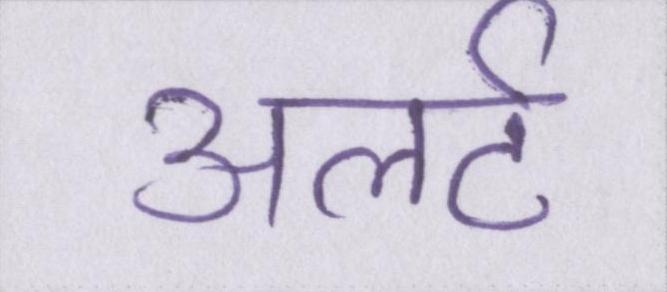 अलर्ट